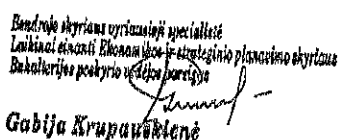 Bendrojo skyriaus vyriausioji specialistė
Laikinai einanti Ekonomikos ir strateginio planavimo skyriaus
Buhalterijos poskyrio vedėjos pareigas
Gabija Krupauskienė